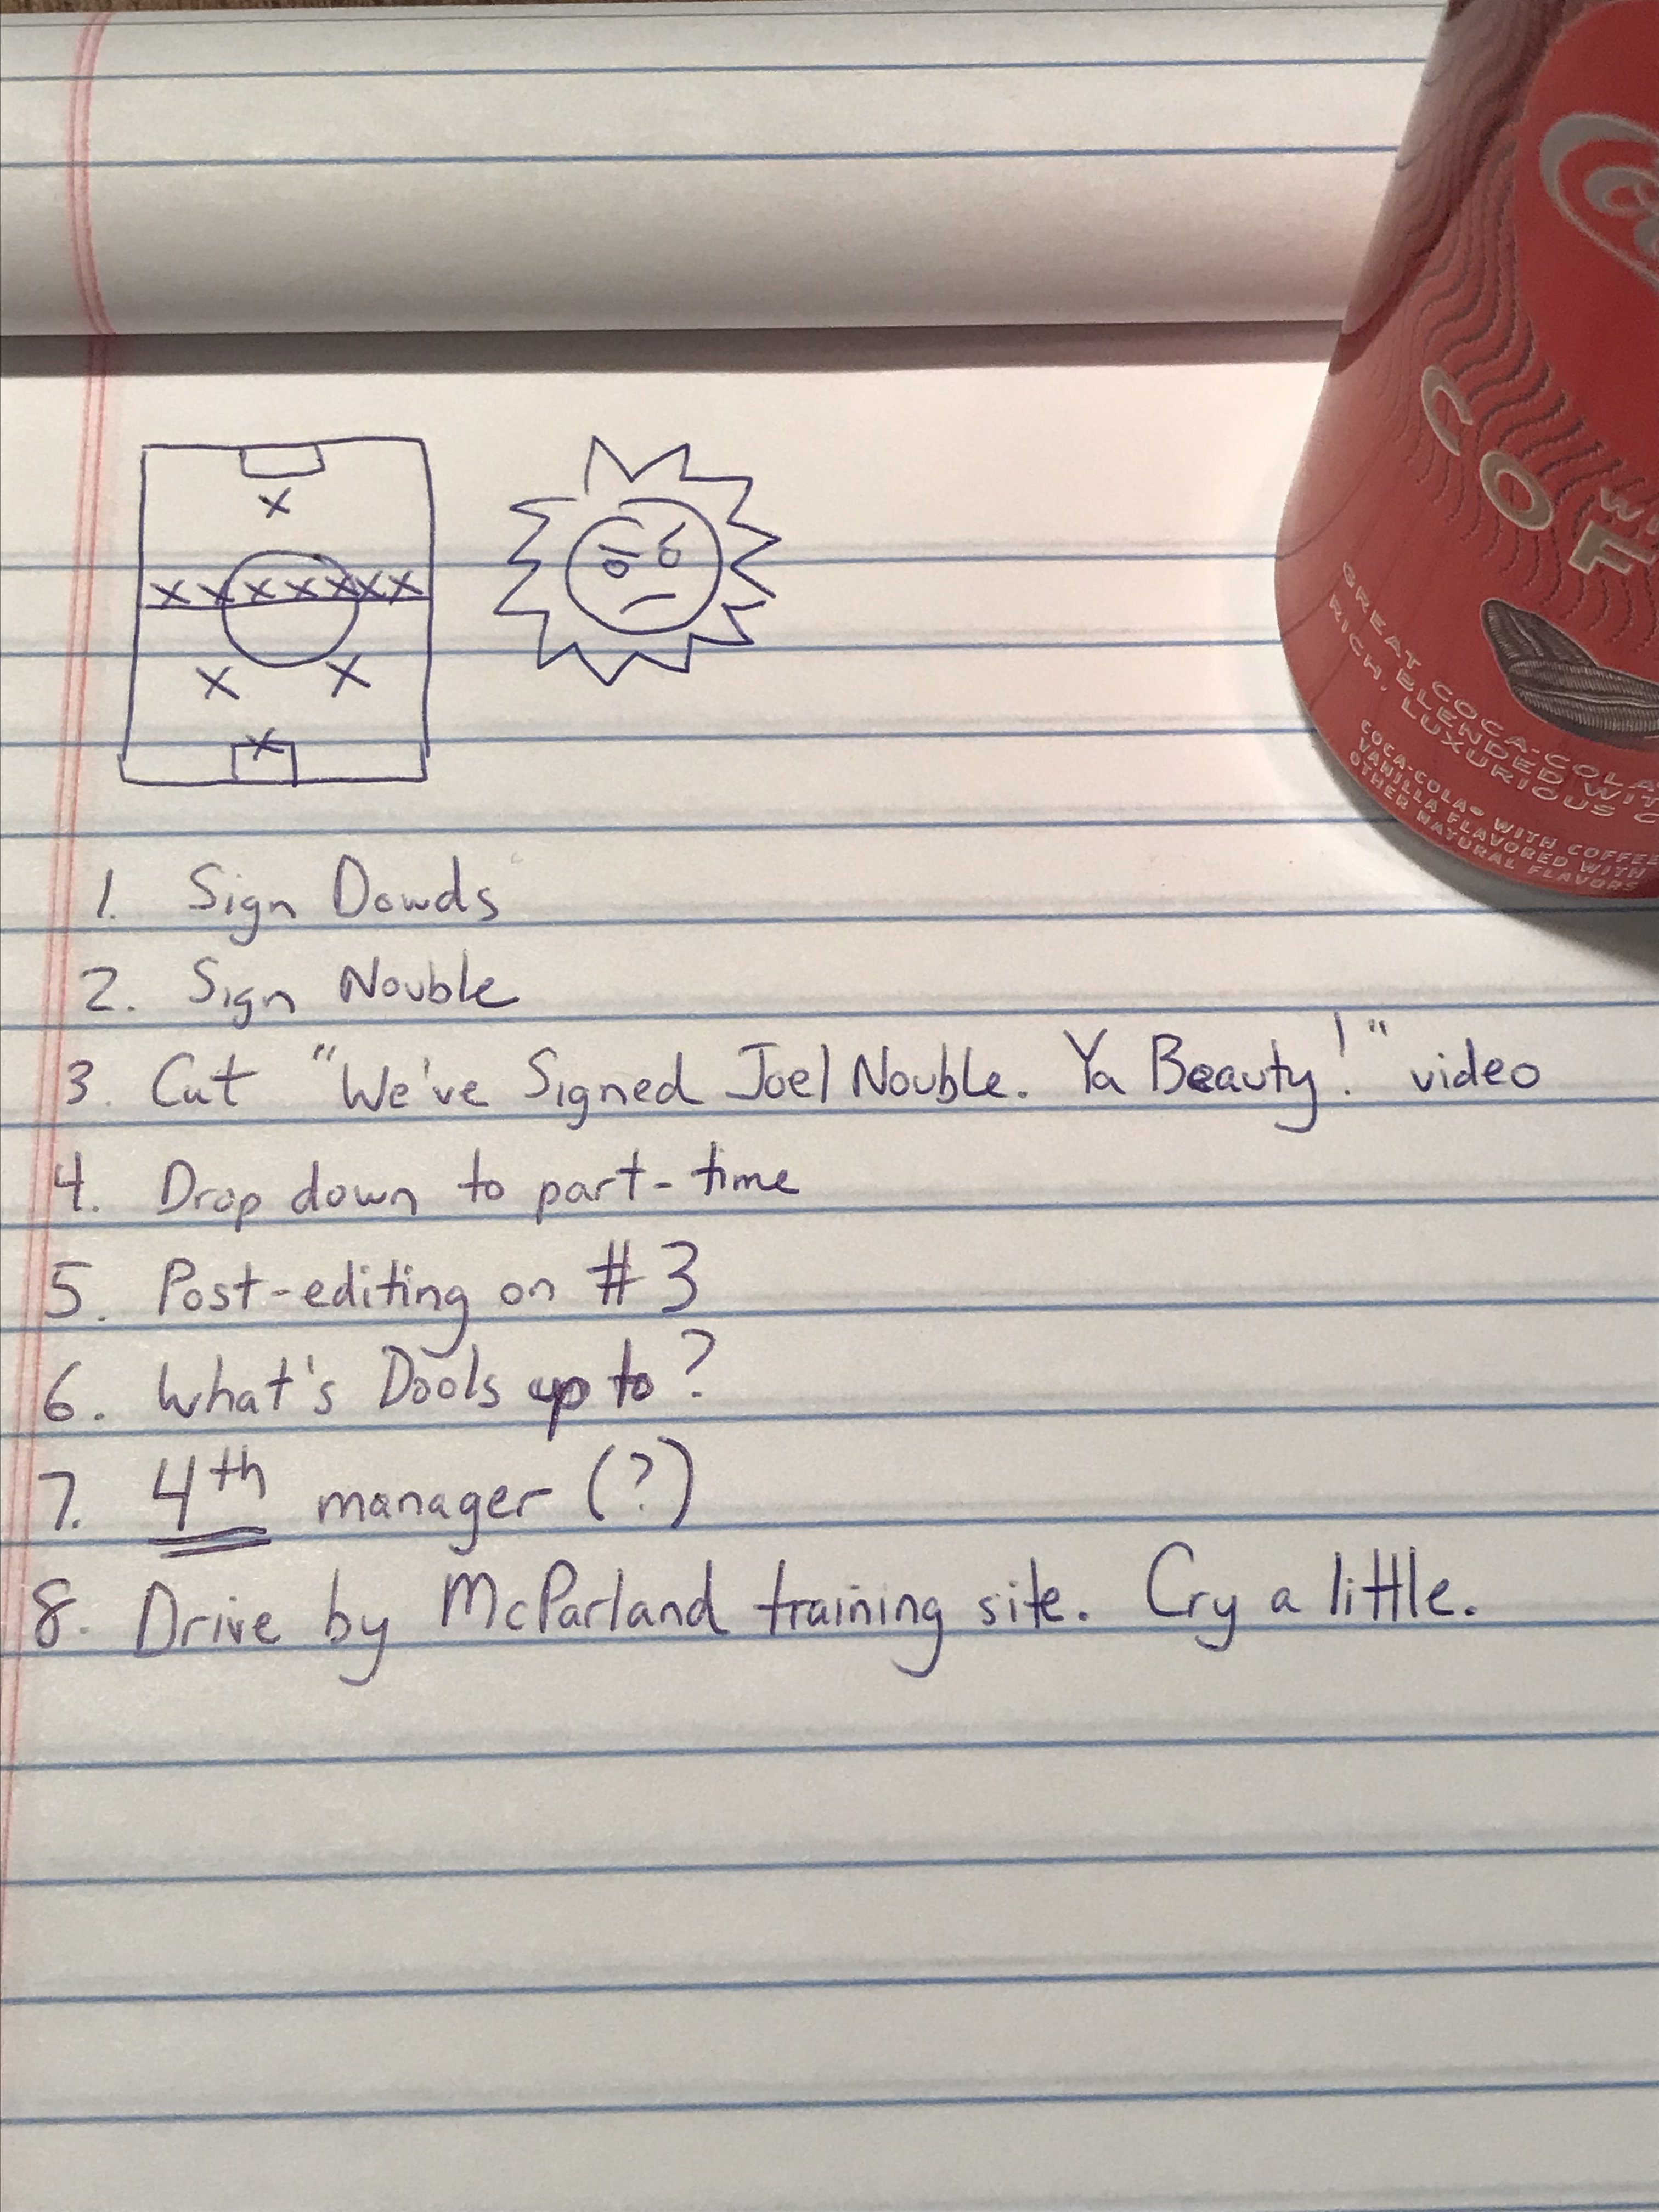 1. Sign Dowds
2. Sign Nouble
3. Cut "We've Signed Joel Nouble. Ya Beauty!" video
4. Drop down to part-time
5. Post-editing on #3
6. What's Dools up to?
7. 4th manager (?)
8. Drive by McParland training site. Cry a little.
COF
GREAT COCA-COLA
RICH, BLENDED WIT
LUXURIOUS C
COCA-COLA® WITH COFFEE
VANILLA FLAVORED WITH
OTHER NATURAL FLAVORS